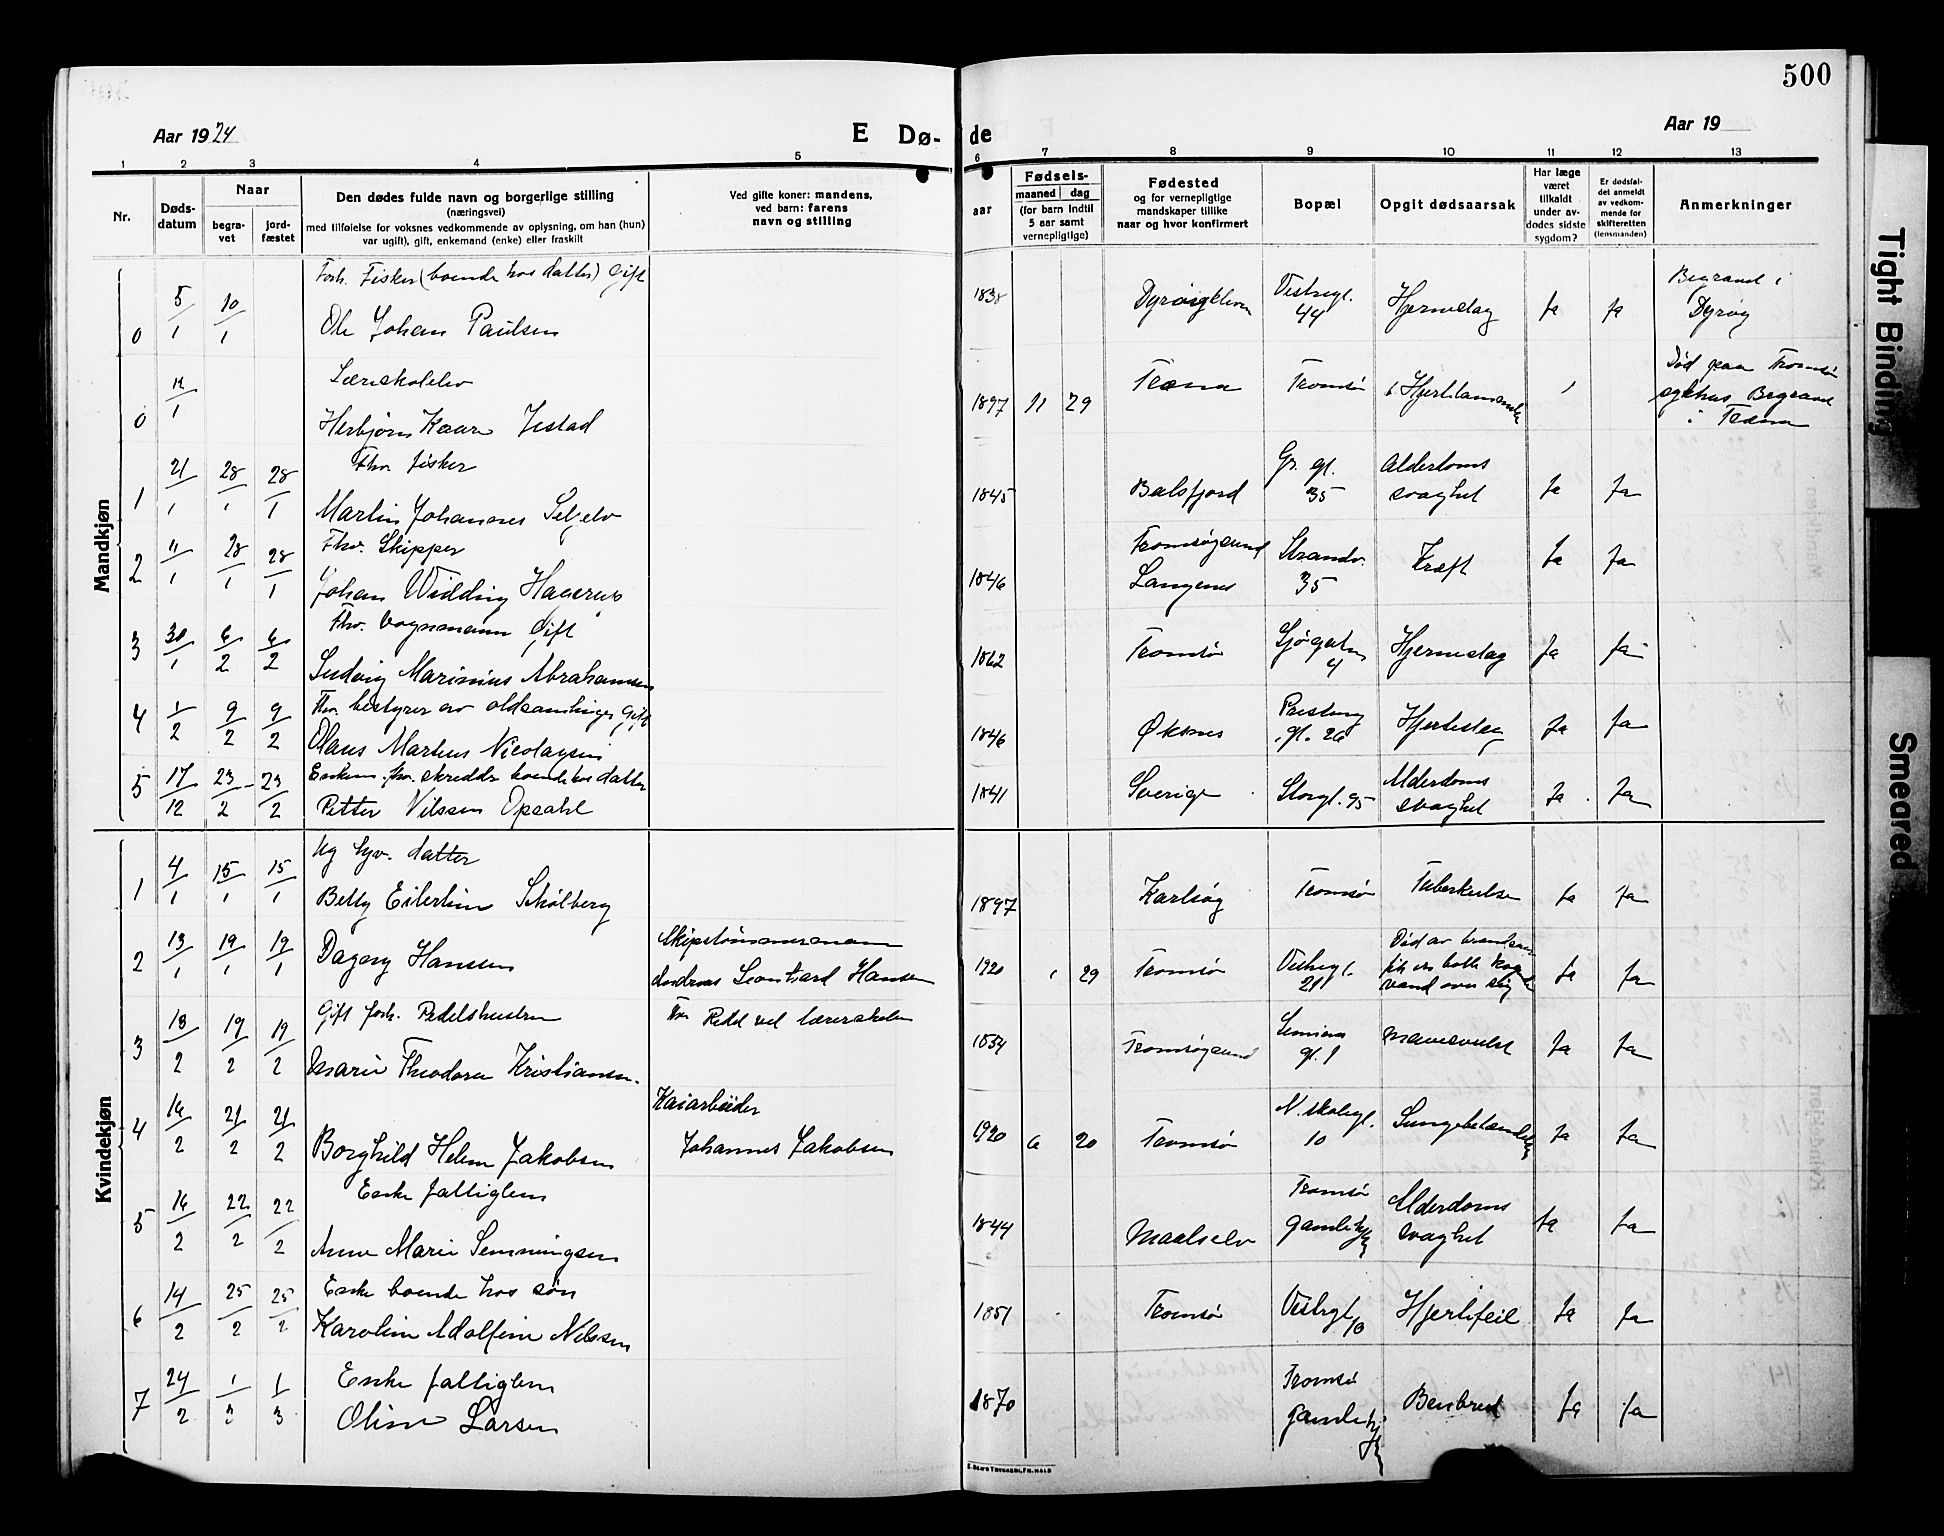 500
Aar 1924
E Dø-
de
Aar 19
1 2 3 4 5 6 7 8 9 10 11 12 13
Nr.
Døds-
datum
Naar
begra-
vet
jord-
fæstet
Den dødes fulde navn og borgerlige stilling
(næringsvei)
med tilføielse for voksnes vedkommende av oplysning, om han (hun)
var ugift), gift, enkemand (enke) eller fraskilt
Ved gifte koner: mandens,
ved barn: farens
navn og stilling
aar
Fødsels-
maaned dag
(for barn indtil
5 aar samt
vernepligtige)
Fødested
og for vernepligtige
mandskaper tillike
naar og hvor konfirmert
Bopæl
Opgit dødsaarsak
Har læge
været
tilkaldt
under av-
dødes sidste
sygdom?
Er dødsfal-
det anmeldt
av vedkom-
mende for
skifteretten
(lensmanden)
Anmerkninger
Mandkjøn
0 5/1 10/1 Forh. Fisker (boende hos datter) Gift
Ole Johan Paulsen
1838 Vestregt. 44 Hjerneslag Ja Ja Begravet i
Dyrøy
0 11/1
Herbjørn Kaare
1897 11 29 Træna Tromsø
Død paa Tromsø
sykehus Begravet
i Træna
1 21/1 28/1 28/1 Fhv. fisker
Martin Johannes Seljelv
1845 Balsfjord Gr. gt. 35 Alderdoms
svaghet Ja Ja
2 11/1 28/1 28/1 Fhv. Skipper
Johan Widding Hagerup
1846 Tromsøysund
Langenes Strandv.
35 Kræft Ja Ja
3 30/1 6/2 6/2 Fhv. Vognmann Gift
Ludvig Marinius Abrahamsen
1862 Tromsø Sjøgaten
4 Hjerneslag Ja Ja
4 1/2 9/2 9/2 Fhv. bestyrer av oldsamlinger, Gift
Olaus Martens Nicolaysen
1846 Øksnes gt. 26 Hjerteslag Ja Ja
5 17/12 23/2 23/2 Enkem. fhv. skredder boende hos datter
Petter Nilssen Opsahl
1841 Sverige Storgt. 95 Alderdoms
svaghet Ja Ja
Kvindekjøn
1 4/1 15/1 15/1 Ug hjv. datter
Betty Eilertine Skolberg
1897 Karlsøy Tromsø Tuberkulose Ja Ja
2 13/1 19/1 19/1 Dagny Hansen
Skipstømmermann
Andreas Leonhard Hansen
1920 1 29 Tromsø Vestregt.
21 Død av brandsaar
vand over sig Ja Ja
3 13/2 19/2 19/2 Gift forh. Pedelshustru
Marie Theodora Kristiansen.
Fhv Pedel ved lærerskolen
1834 Tromsøysund
gt. 1 Mavesvulst Ja Ja
4 16/2 21/2 21/2 Borghild Helene Jakobsen
Kaiarbeider
Johannes Jakobsen
1920 6 20 Tromsø N. skolegt.
10 Lungebetændelse Ja Ja
5 16/2 22/2 22/2 Enke fattiglem
Anne Marie Henningsen
1844 Maalselv Tromsø
gamlehjem Alderdoms
svaghet Ja Ja
6 14/2 25/2 25/2 Enke boende hos søn
Karoline Adolfine Nilssen
1851 Tromsø Vestregt. Hjertefeil Ja Ja
7 24/2 1/3 1/3 Enke fattiglem
Oline Larsen
1870 Tromsø
gamlehjem Benbrud Ja Ja
Tight Binding
Smeared